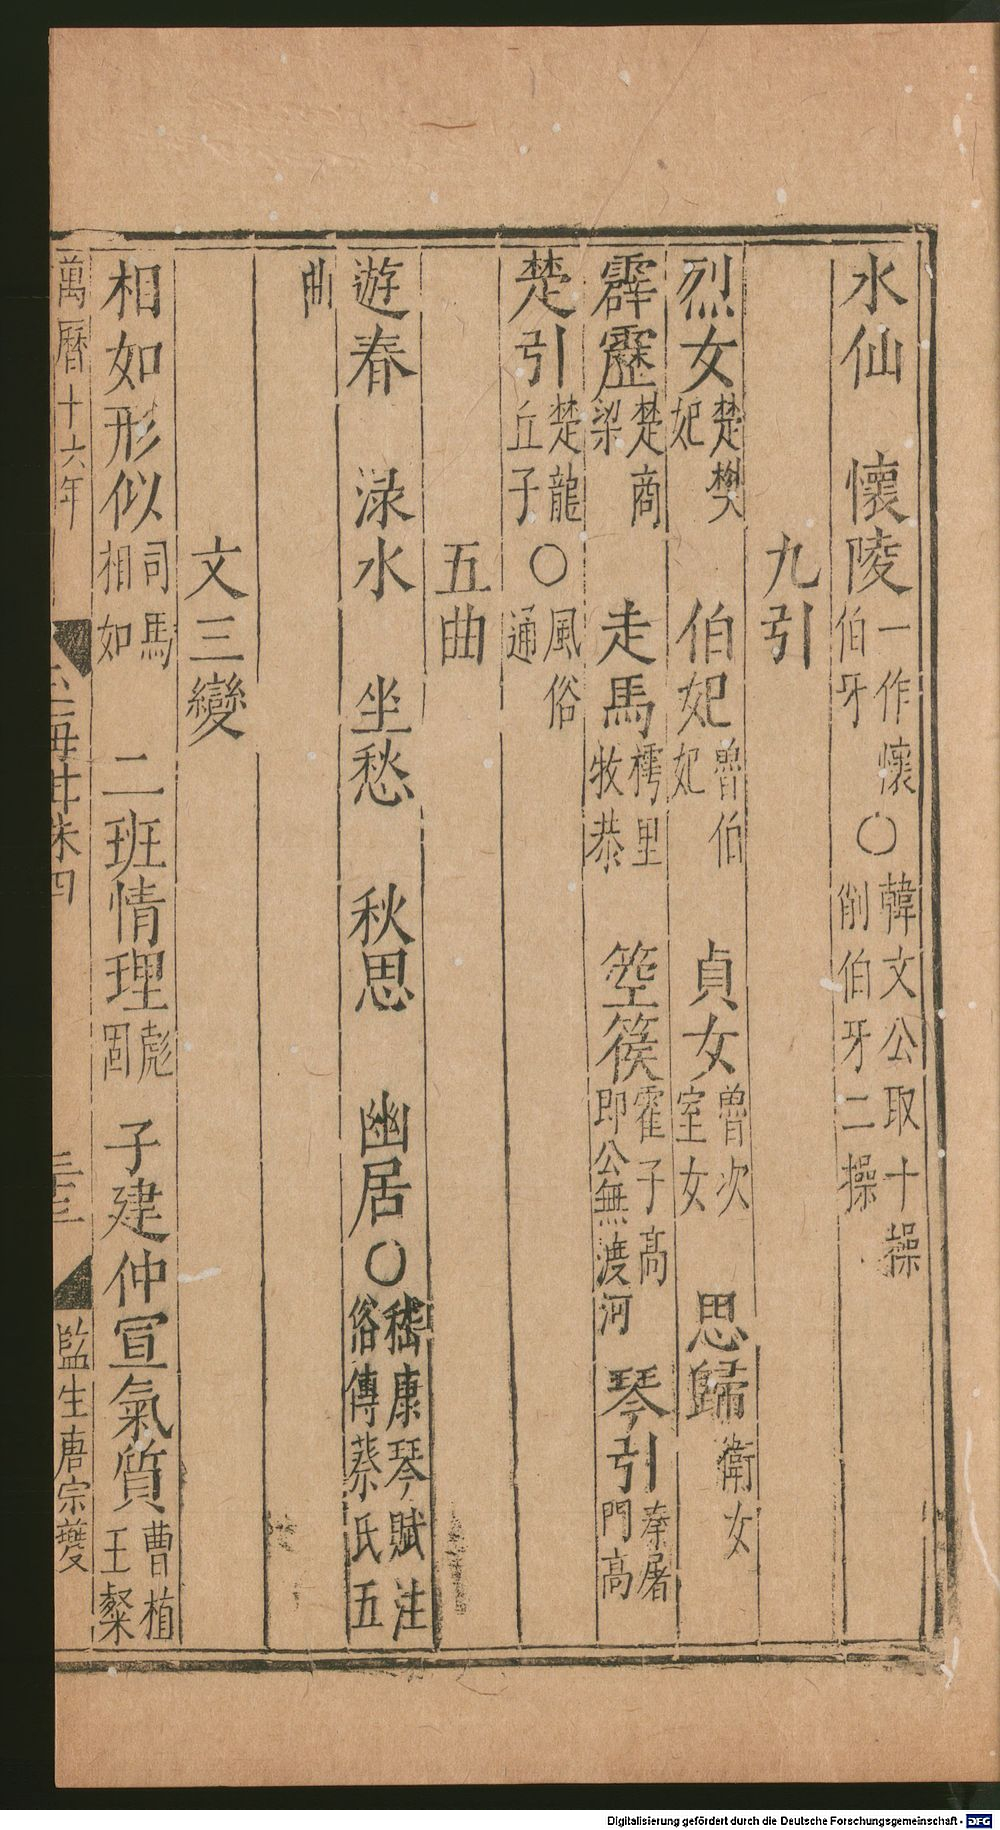 水仙　懷陵一作懷伯牙○韓文公取十操削伯牙二操
九引
烈女楚樊妃　伯妃魯伯妃　貞女魯次室女　思歸衛女
霹靂楚商梁　走馬樗里牧恭　箜篌霍子高即公無渡河　琴引秦屠門高
楚引楚龍丘子○風俗通
五曲
遊春　淥水　坐愁　秋思　幽居○嵇康琴賦注俗傳蔡氏五
曲
文三變
相如形似司馬相如　二班情理彪固　子建仲宣氣質曹植王粲
萬曆十六年
監生唐宗夔
Digitalisierung gefördert durch die Deutsche Forschungsgemeinschaft - DFG